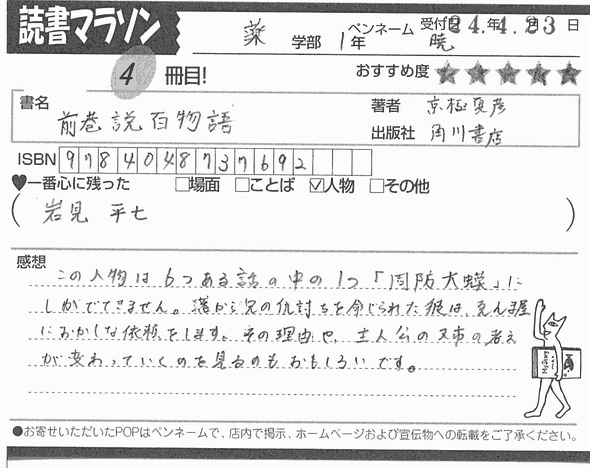 読書マラソン
薬 学部 1年 ペンネーム 暁 受付日 24年4月23日
4 冊目! おすすめ度 ★★★★★
書名 前巷説百物語
著者 京極夏彦
出版社 角川書店
ISBN 9784048737692
♥一番心に残った □場面 □ことば ☑人物 □その他
(岩見 平七)
感想
この人物は6つある話の中の1つ「周防大蟆」に
しかでてきません。藩から兄の仇討ちを命じられた彼は、えんま屋
におかしな依頼をします。その理由や、主人公の又市の考え
が変わっていくのを見るのもおもしろいです。
●お寄せいただいたPOPはペンネームで、店内で掲示、ホームページおよび宣伝物への転載をご了承ください。